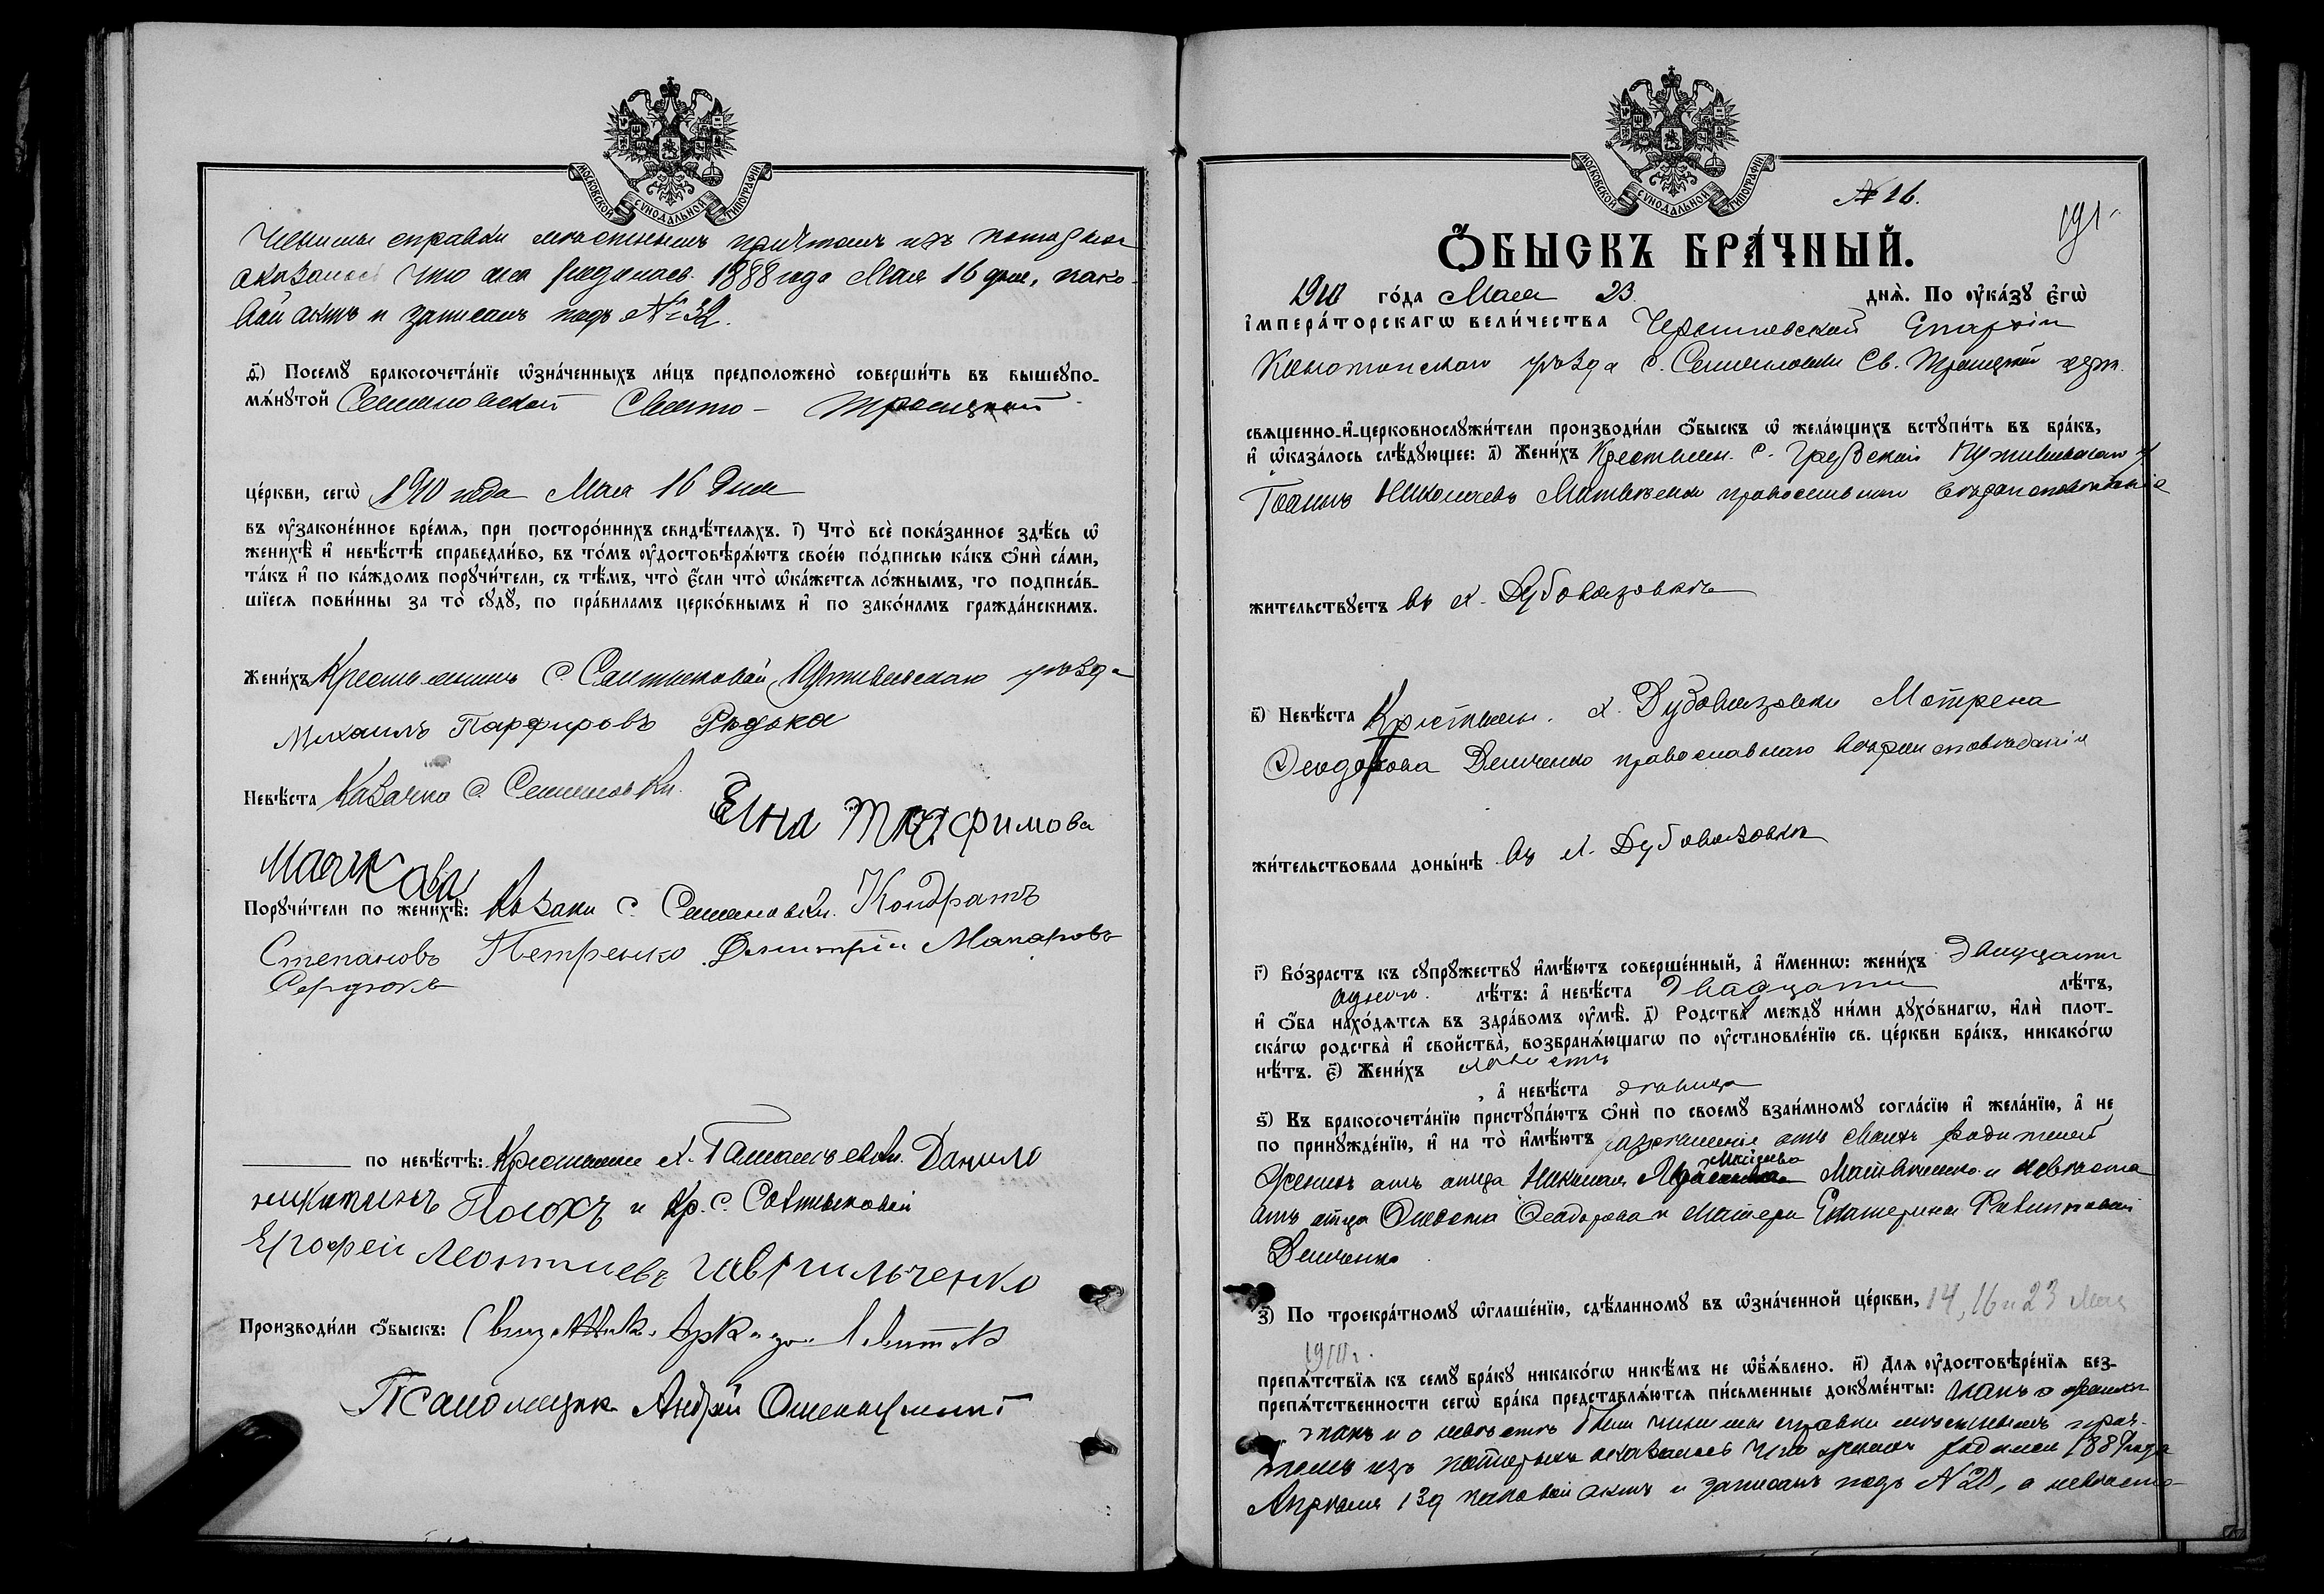 МОСКОВСКОЙ СѴНОДАЛЬНОЙ ТИПОГРАФІИ
справки мѣстнымъ причтомъ изъ
что она родилась 1888 года Мая 16 дня, тако-
вой актъ и записанъ подъ № 32.
д҃і) Посемꙋ бракосочета́нїе ѡзна́ченныхъ ли́цъ предположено̀ соверши́ть въ вышеꙋпо-
мѧ́нꙋтой Семеновской Свято-Троицкой
це́ркви, сегѡ̀ 1910 года Мая 16 дня
въ ᲂузаконе́нное вре́мѧ, при посторо́ннихъ свидѣ́телѧхъ. і҃) Что̀ всѐ пока́занное здѣ́сь ѡ҆
женихѣ̀ и҆ невѣ́стѣ справедли́во, въ то́мъ ᲂудостовѣрѧ́ютъ свое́ю по́дписью ка́къ ѻ҆нѝ са́ми,
та́къ и҆ по ка́ждомъ порꙋчи́тели, съ тѣ́мъ, что̀ є҆́сли что̀ ѡ҆ка́жетсѧ ло́жнымъ, то подписа́в-
шїесѧ пови́нны за то̀ сꙋдꙋ̀, по пра́виламъ церко́внымъ и҆ по зако́намъ гражда́нскимъ.
Жени́хъ Крестьянинъ с. Салтыковой, Путивльскаго уѣзда
Михаилъ Парфировъ Рѣдька
Невѣ́ста Казачка с. Семеновки.
Трофимова
Порꙋчи́тели по женихѣ̀: Козаки с. Семеновки. Кондратъ
Степановъ Петренко Дмитрій Макаровъ
Сердюкъ
по невѣ́стѣ: Крестьяне х. Данило
Никитинъ Полохъ и Кр. с. Салтыковой
Ерофей Леонтіевъ Гаврильченко
Производи́ли ѻ҆́быскъ: Священникъ Аркадій
Псаломщикъ Андрей
МОСКОВСКОЙ СѴНОДАЛЬНОЙ ТИПОГРАФІИ
№ 16.
191
Ѻ҆́БЫСКЪ БРА́ЧНЫЙ.
1910 го́да Мая 23 днѧ̀. По ᲂука́зꙋ є҆гѡ̀
і҆мпера́торскагѡ вели́чества Черниговской Епархіи
Конотопскаго уѣзда с. Семеновки Св. Троицкой церк.
свѧщенно-и҆-церковнослꙋжи́тели производи́ли ѻ҆́быскъ ѡ҆ жела́ющихъ встꙋпи́ть въ бра́къ,
и҆ ѡ҆каза́лось слѣ́дꙋющее: а҃) Жени́хъ Крестьян. с. Грузской Путивльскаго у.
Іоаннъ Николаевъ Матвѣенко православнаго вѣроисповѣданія
жительствꙋетъ въ х. Дубовязовкѣ
в҃) Невѣ́ста Крестьян. х. Дубовязовки Мотрена
Ѳеодорова Демченко православнаго вѣроисповѣданія
жи́тельствовала доны́нѣ въ х. Дубовязовкѣ
г҃) Во́зрастъ къ сꙋпрꙋ́жествꙋ и҆мѣ́ютъ соверше́нный, а҆ и҆́меннѡ: жени́хъ двадцати
одного лѣ́тъ: а҆ невѣ́ста двадцати лѣ́тъ,
и҆ ѻ҆́ба нахо́дѧтсѧ въ здра́вомъ ᲂумѣ̀. д҃) Родства̀ междꙋ̀ ни́ми дꙋхо́внагѡ, и҆лѝ плот-
ска́гѡ родства̀ и҆ сво́йства̀, возбранѧ́ющагѡ по ᲂустановле́нїю св. це́ркви бра́къ, никако́гѡ
нѣ́тъ. є҃) Жени́хъ холостъ
, а҆ невѣ́ста дѣвица
ѕ҃) Къ бракосочета́нїю пристꙋпа́ютъ ѻ҆нѝ по своемꙋ̀ взаи́мномꙋ согла́сїю и҆ жела́нїю, а҆ не
по принꙋжде́нїю, и҆ на то̀ и҆мѣ́ютъ разрѣшеніе отъ своихъ родителей
Женихъ отъ отца Николая Матвѣенко и невѣста
отъ отца Ѳеодорова и матери Екатерины
Демченко
з҃) По троекра́тномꙋ ѡ҆глаше́нїю, сдѣ́ланномꙋ въ ѡ҆зна́ченной це́ркви, 14, 16 и 23 Мая
1910 г.
препѧ́тствїѧ къ семꙋ̀ бра́кꙋ никако́гѡ никѣ́мъ не ѡ҆б̾ѧ́влено. и҃) Длѧ ᲂудостовѣре́нїѧ без-
препѧ́тственности сегѡ̀ бра́ка представлѧ́ютсѧ пи́сьменные докꙋме́нты: какъ о женихѣ
такъ и о невѣстѣ были чинимы справки мѣстнымъ прич-
томъ изъ которыхъ оказалось что женихъ родился года
Апрѣля 13д таковой актъ и записанъ подъ № 20, а невѣста